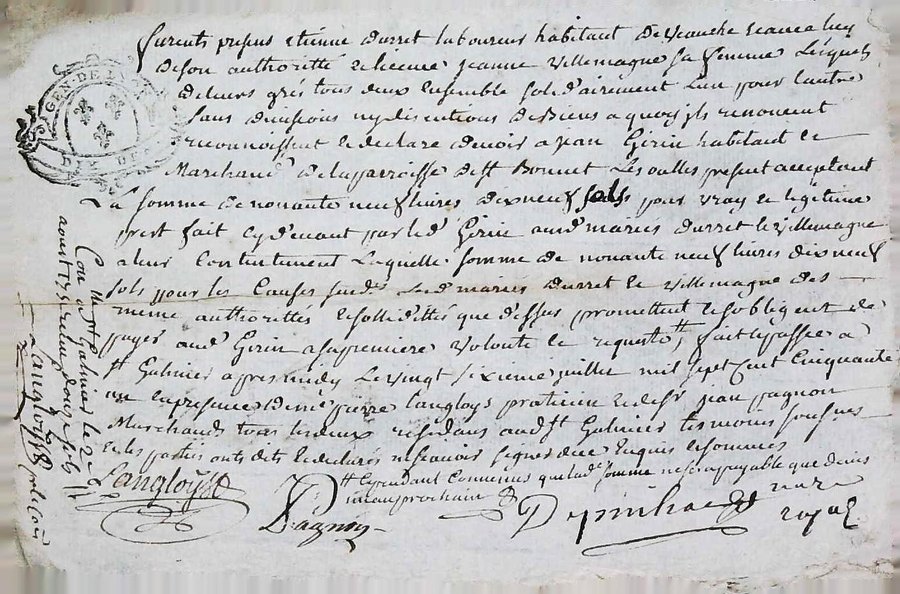 furent presens Etienne durret laboureur habitant De veauche Jeanne
De son authoritté Jeanne villemagne sa femme Lesquels
De leurs grés tous deux Ensemble solidairement L'un pour L'autre
sans divisions ny discutions De Biens a quoy ils renoncent
reconnoissent et declare devoir a Jean Girin habitant et
Marchand De la parroisse De st Bonnet Les oulles present acceptant
La somme De nonante neuf livres dix neuf sols pour vray et legitime
prest fait cy devant par led Girin aud maries durret et villemagne
a leur Contentement Laquelle somme De nonante neuf livres dix neuf
sols pour les Causes susd Led maries durret et villemagne des
meme authorittés et sollidittés que dessus promettent et sobligent de
payer aud Girin a sa premiere volonté et requeste fait et passé a
st Galmier apres midy Le vingt sixieme juillet mil sept Cent Cinquante
un En presence De me pierre Langloys praticien et de sr jean pagnon
Marchands tous les deux residans aud st Galmier tesmoins sousnes
et les parties onts dets et declarés ne scavoir signer de ce Enquis et sommés
et Cependant Convenus que lad somme ne sera payable que
prochain
Langloys
Pagnon
royal
Con a st Galmier le 2e
aoust 1751 recu douze sols
Langloys
GEN DE L